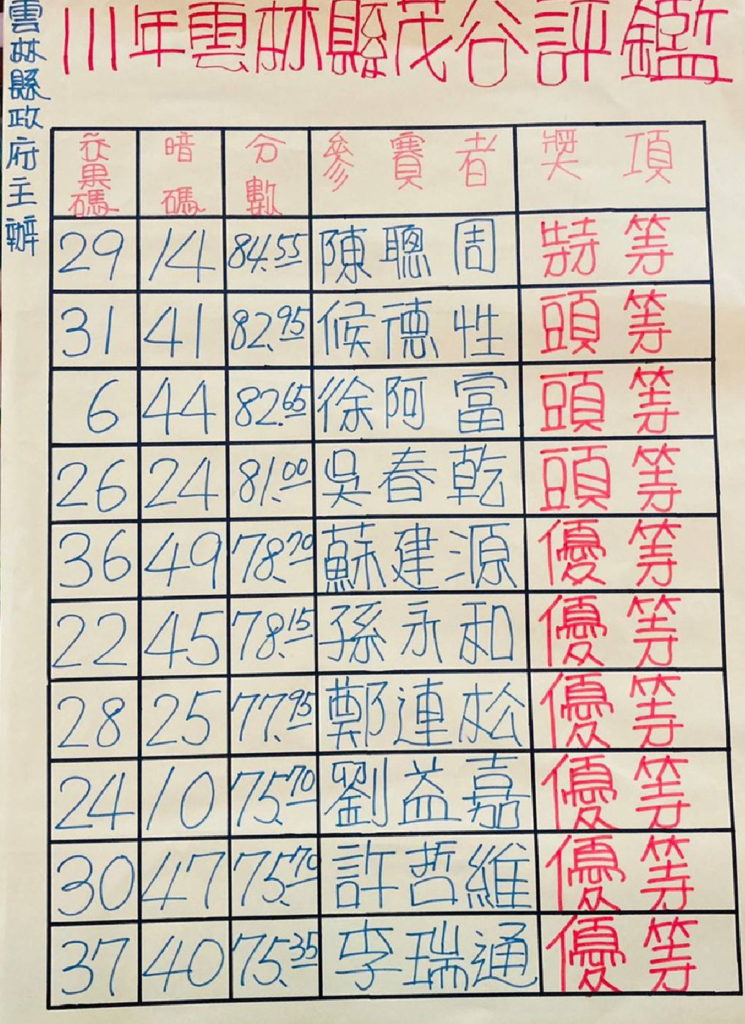 111年雲林縣茂谷評鑑
雲林縣政府主辦
在果碼 暗碼 分數 參賽者 獎項
29 14 84.55 陳聰周 特等
31 41 82.95 候德性 頭等
6 44 82.65 徐阿富 頭等
26 24 81.00 吳春乾 頭等
36 49 78.70 蘇建源 優等
22 45 78.15 孫永和 優等
28 25 77.95 鄭連松 優等
24 10 75.70 劉益嘉 優等
30 47 75.70 許哲維 優等
37 40 75.35 李瑞通 優等